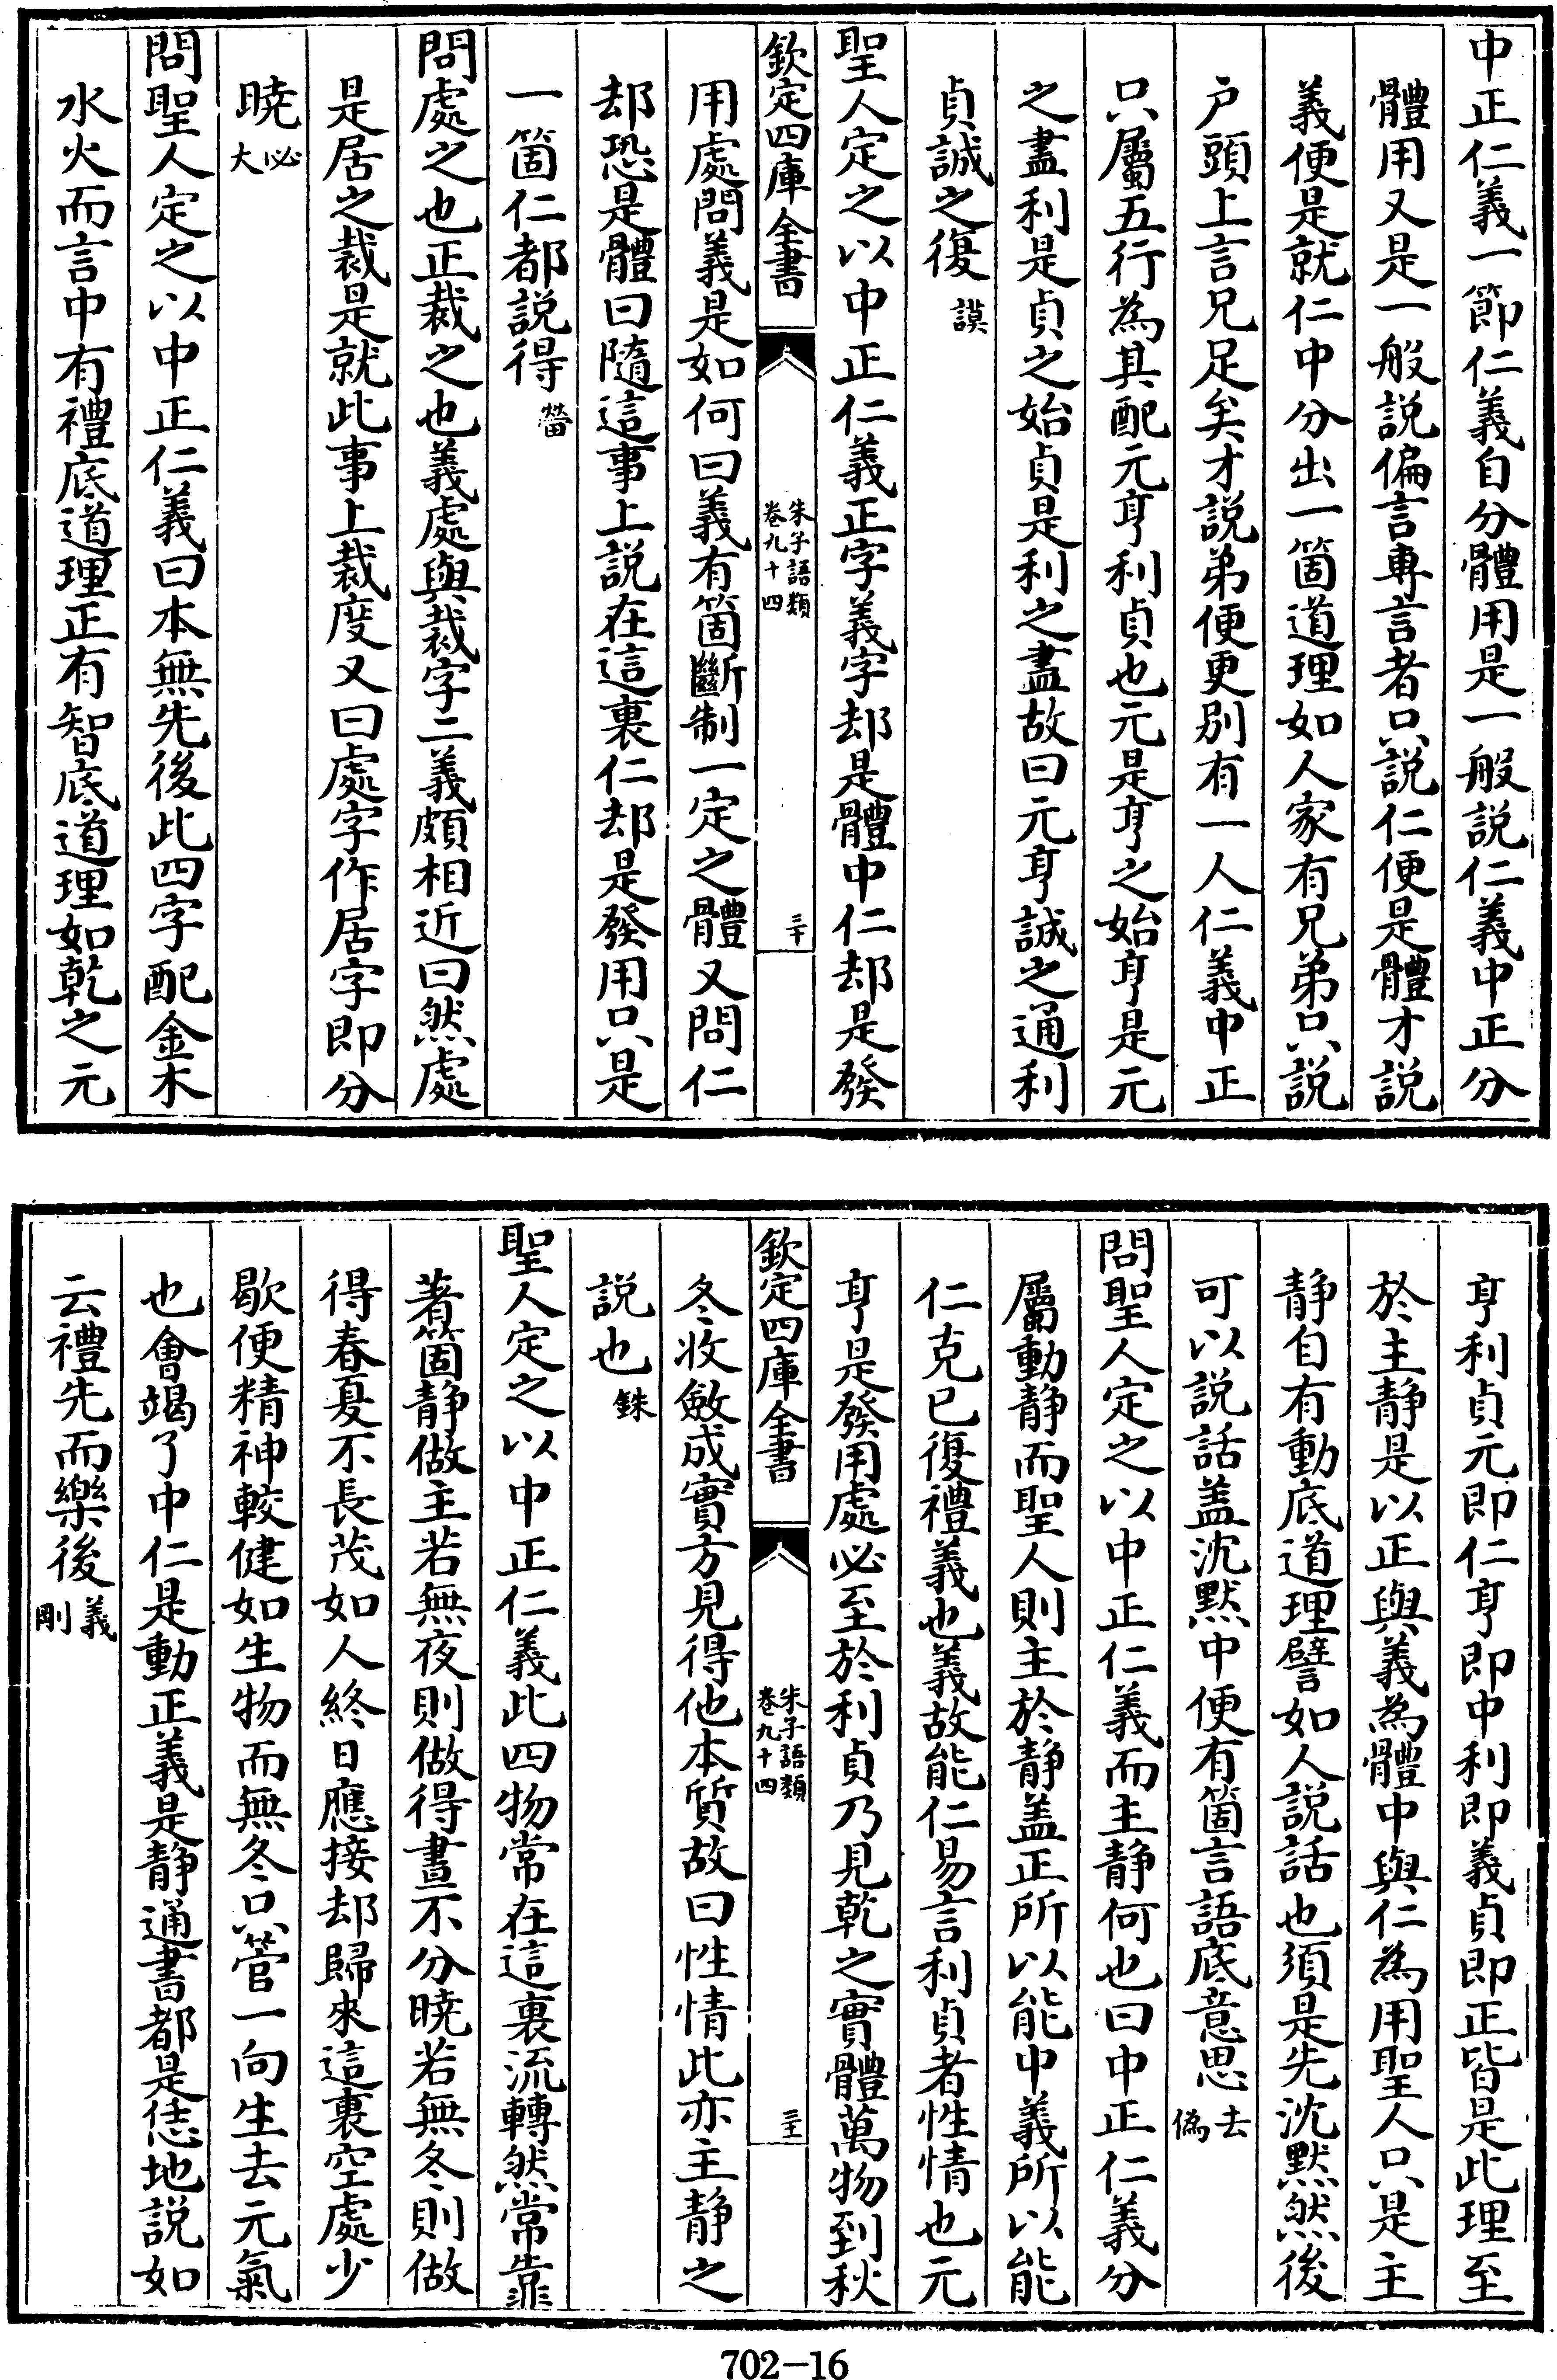 中正仁義一節仁義自分體用是一般説仁義中正分
體用又是一般説偏言專言者只説仁便是體才説
義便是就仁中分出一箇道理如人家有兄弟只説
户頭上言兄足矣才説弟便更别有一人仁義中正
只屬五行為其配元亨利貞也元是亨之始亨是元
之盡利是貞之始貞是利之盡故曰元亨誠之通利
貞誠之復謨
聖人定之以中正仁義正字義字却是體中仁却是發
欽定四庫全書
朱子語類
卷九十四
三十
用處問義是如何曰義有箇斷制一定之體又問仁
却恐是體曰隨這事上説在這裏仁却是發用只是
一箇仁都説得㽦
問處之也正裁之也義處與裁字二義頗相近曰然處
是居之裁是就此事上裁度又曰處字作居字即分
曉必大
問聖人定之以中正仁義曰本無先後此四字配金木
水火而言中有禮底道理正有智底道理如乾之元
亨利貞元即仁亨即中利即義貞即正皆是此理至
於主静是以正與義為體中與仁為用聖人只是主
静自有動底道理譬如人説話也須是先沈黙然後
可以説話盖沈黙中便有箇言語底意思去偽
問聖人定之以中正仁義而主静何也曰中正仁義分
屬動静而聖人則主於静盖正所以能中義所以能
仁克已復禮義也義故能仁易言利貞者性情也元
亨是發用處必至於利貞乃見乾之實體萬物到秋
欽定四庫全書
朱子語類
卷九十四
三十一
冬收斂成實方見得他本質故曰性情此亦主静之
説也銖
聖人定之以中正仁義此四物常在這裏流轉然常靠
著箇静做主若無夜則做得晝不分曉若無冬則做
得春夏不長茂如人終日應接却歸來這裏空處少
歇便精神較健如生物而無冬只管一向生去元氣
也會竭了中仁是動正義是静通書都是恁地説如
云禮先而樂後義剛
702-16